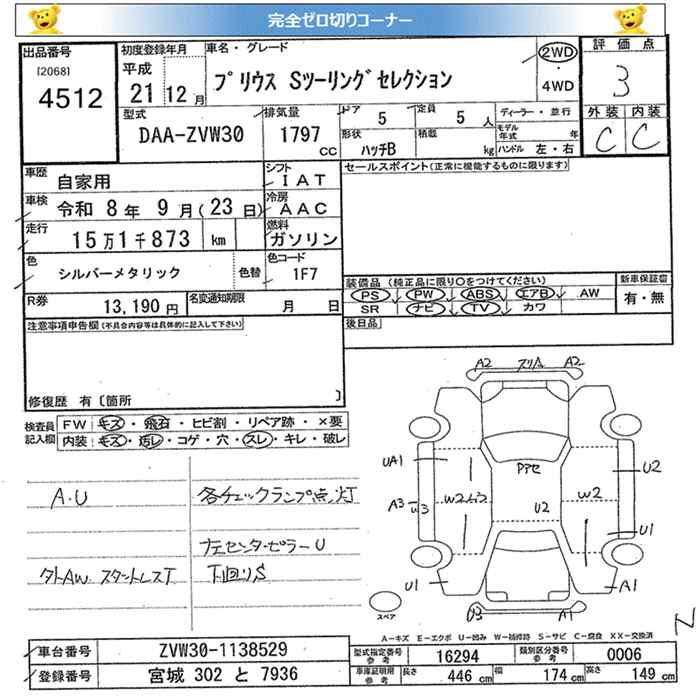 完全ゼロ切りコーナー
出品番号
[2068]
4512
初度登録年月
平成
21年12月
車名・グレード
プリウス Sツーリングセレクション
2WD
・
4WD
評価点
3
外装 内装
C C
型式
DAA-ZVW30
排気量
1797
CC
ドア
5
定員
5人
形状
ハッチB
積載
kg
ディーラー・並行
モデル年式 年
ハンドル 左・右
車歴
自家用
シフト
IAT
車検
令和 8年 9月(23日)
冷房
AAC
走行
15万1千873 km
燃料
ガソリン
色
シルバーメタリック
色替
色コード
1F7
R券
13,190円
名変通知期限
月 日
セールスポイント(正常に機能するものに限ります)
装備品(純正品に限り○をつけてください)
PS PW ABS エアB AW
SR ナビ TV カワ
新車保証書
有・無
後日品
注意事項申告欄(不具合内容等は具体的に記入して下さい)
修復歴 有〔箇所 〕
検査員記入欄
FW キズ・飛石・ヒビ割・リペア跡・×要
内装 キズ・汚レ・コゲ・穴・スレ・キレ・破レ
A.U
各チェックランプ点灯
左センターピラーU
タトAW. スタットレスT
下回りS
A2 A2
UA1
A3
W3
W2
U2
U2
W2
U1
U1
A1
U3
A1
スペア
A-キズ E-エクボ U-凹み W-補修跡 S-サビ C-腐食 XX-交換済
車台番号
ZVW30-1138529
登録番号
宮城 302 と 7936
型式指定番号
参考
16294
類別区分番号
参考
0006
車庫証明用
参考
長さ 446 cm
幅 174 cm
高さ 149 cm